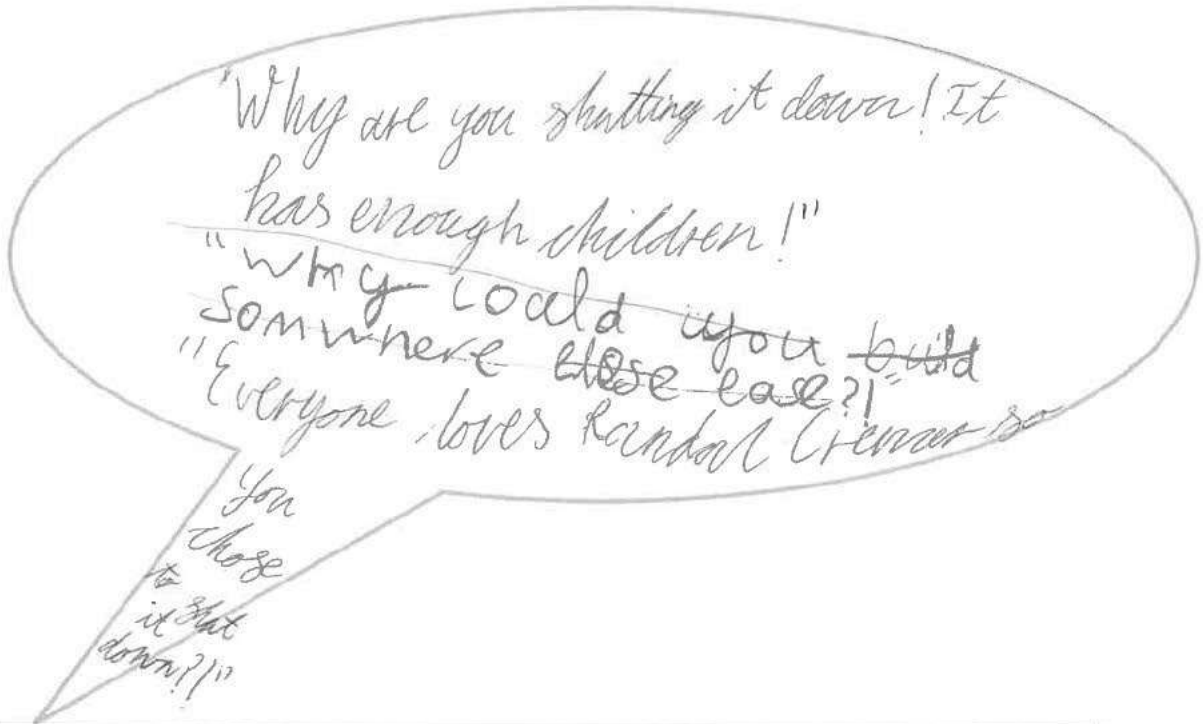 "Why are you shutting it down! It
has enough children!"
"why could you build
somwhere else ease?!"
"Everyone loves Randal Cremer so
you
chose
to
it shut
down?!"